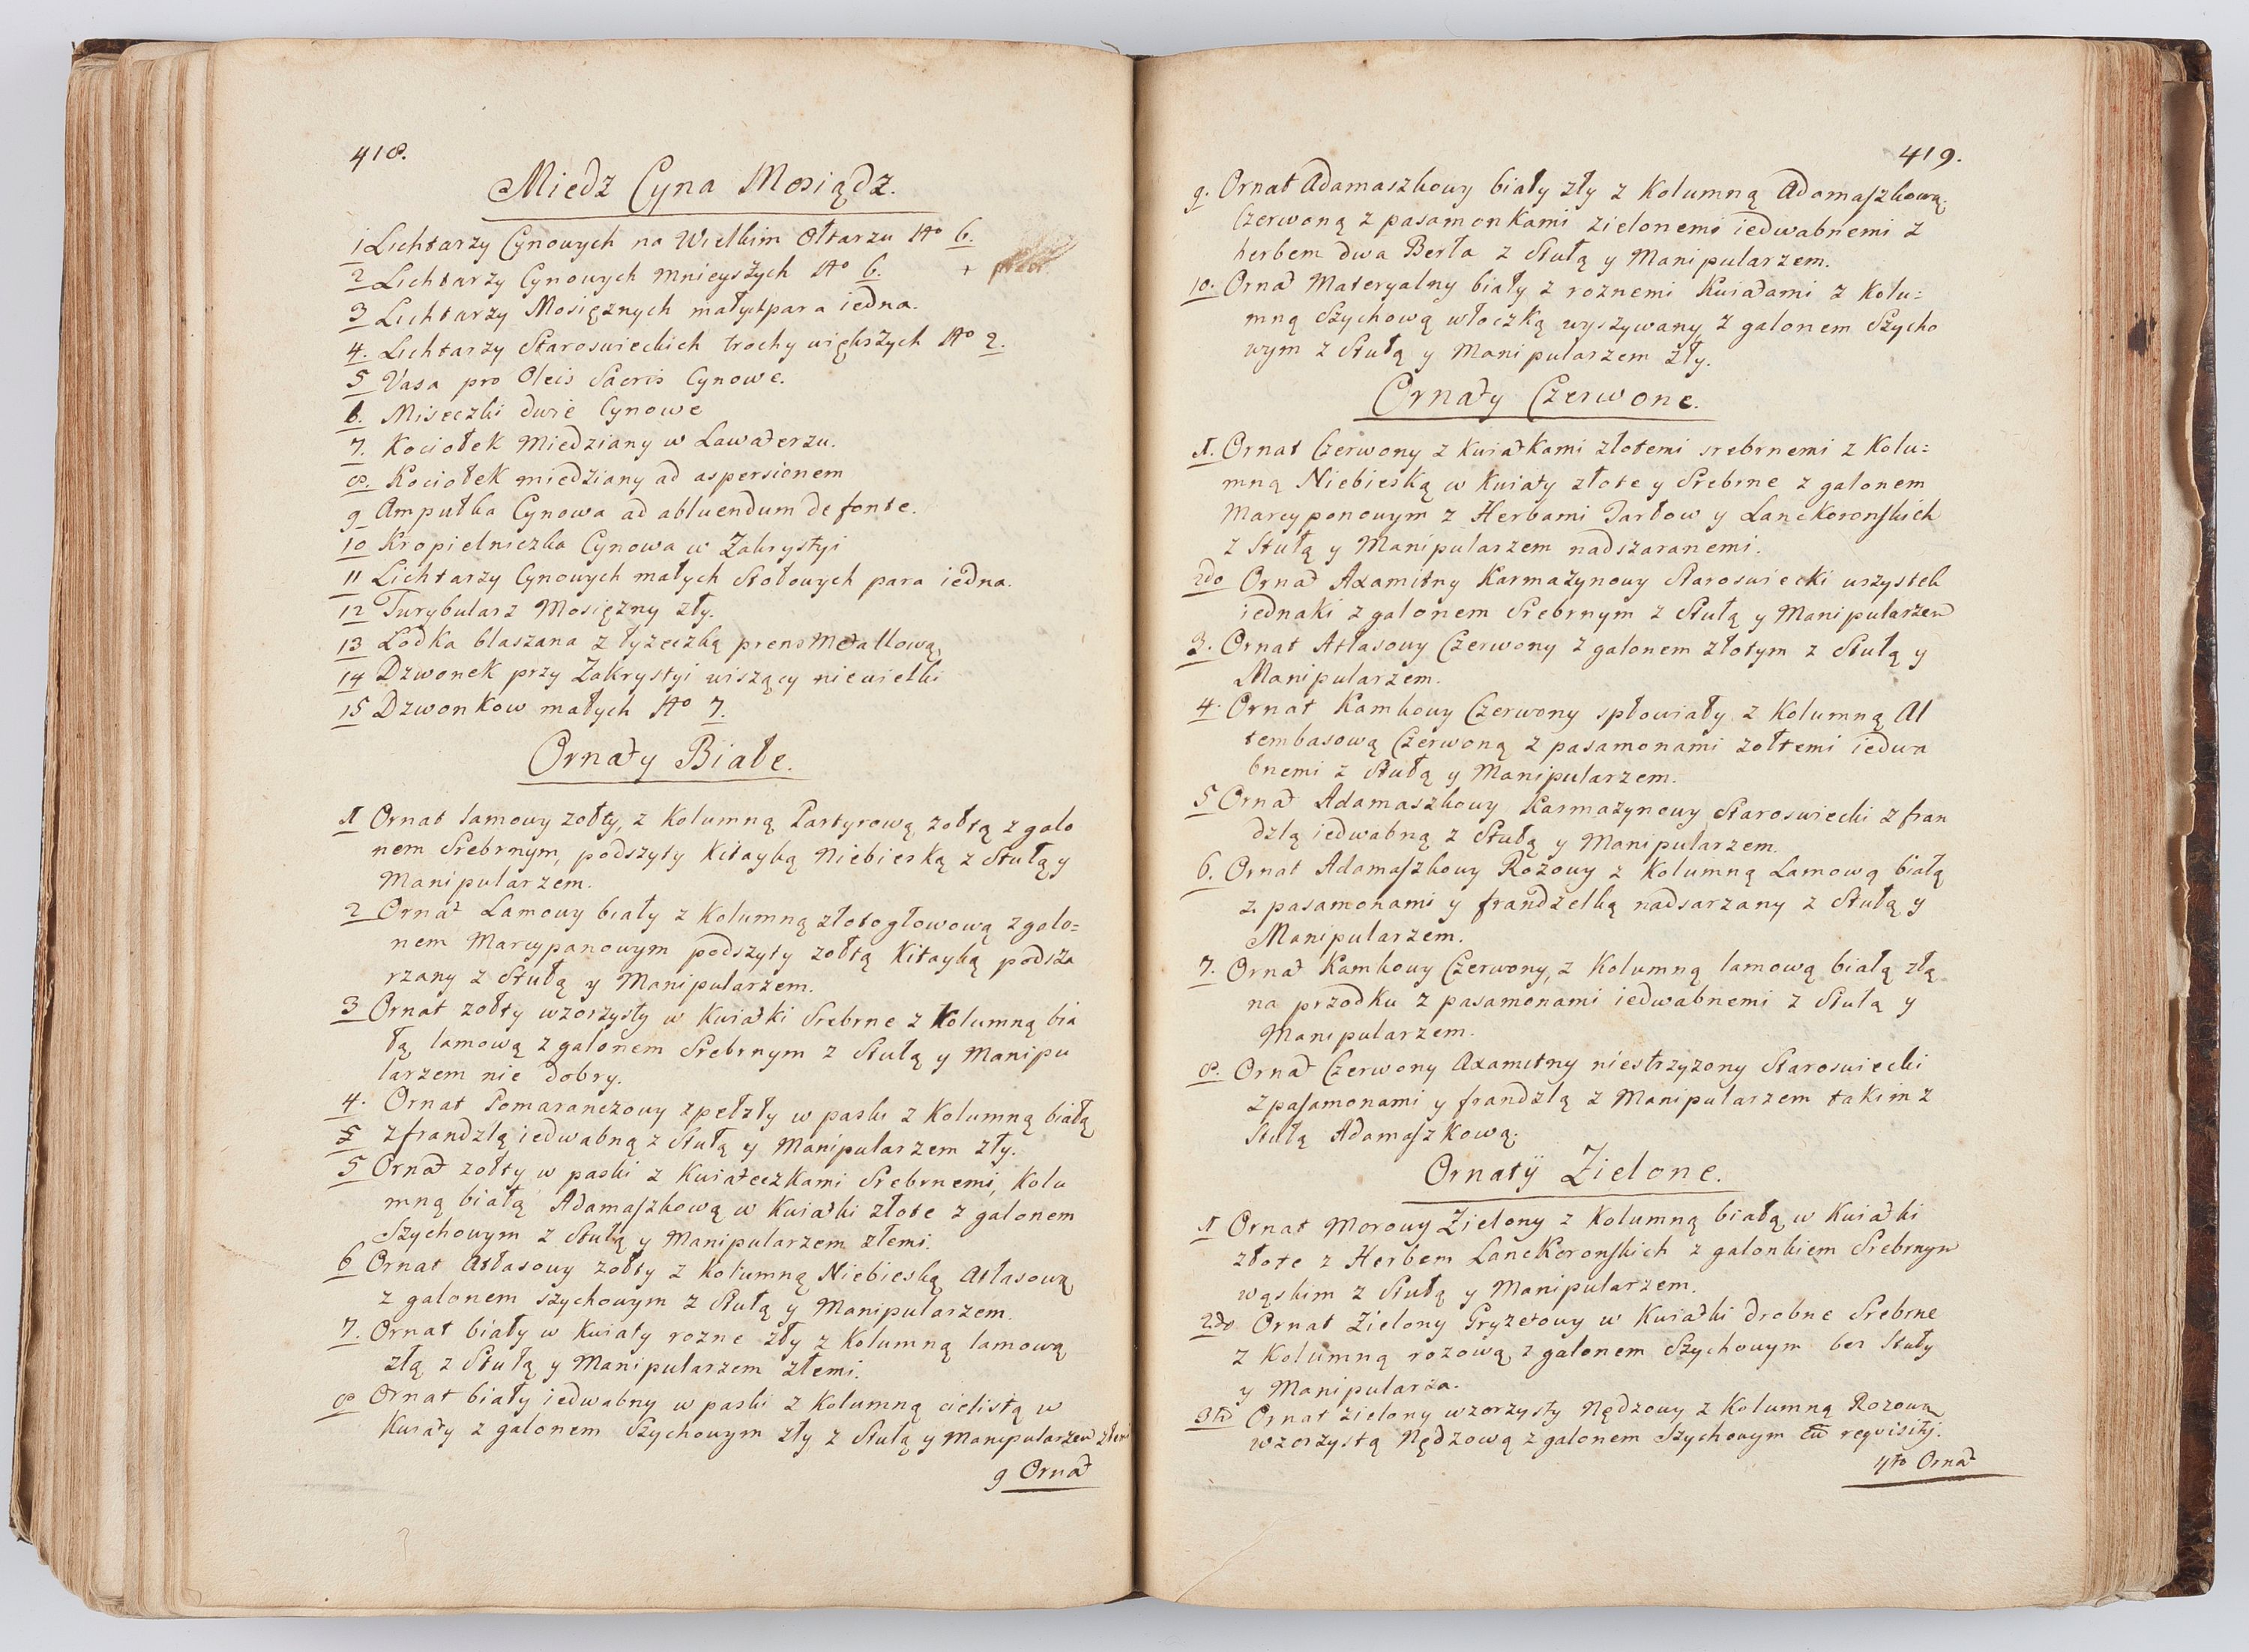 418.
Miedz Cyna Mosiądz.
1 Lichtarzy Cynowych na Wielkim Ołtarzu No 6.
2 Lichtarzy Cynowych mnieyszych No 6. +
3 Lichtarzy Mosięznych małych para iedna.
4. Lichtarzy Staroswieckich trochy większych No 2.
5 Vasa pro Oleis Sacris Cynowe.
6. Miseczki dwie Cynowe
7. Kociołek Miedziany w Lawaterzu.
8. Kociołek miedziany ad aspersionem
9 Ampułka Cynowa ad abluendum de fonte.
10 Kropielniczka Cynowa w Zakrystyi
11 Lichtarzy Cynowych małych Stołowych para iedna.
12 Turybularz Mosięzny zły.
13 Lodka blaszana z łyzeczką Metallową,
14 Dzwonek przy Zakrystyi wiszący niewielki
15 Dzwonkow małych No 7.
Ornaty Białe.
1 Ornat lamowy zołty, z Kolumną Partyrową zołtą z galo
nem Srebrnym, podszyty Kitayką Niebieską z Stułą y
Manipularzem.
2 Ornat Lamowy biały z Kolumną złotogłowową z galo=
nem Marcypanowym podszyty zołtą Kitayką podsza
rzany z Stułą y Manipularzem.
3 Ornat zołty wzorzysty w Kwiatki Srebrne z Kolumną bia
łą lamową z galonem Srebrnym z Stułą y Manipu
larzem nie dobry.
4. Ornat Pomaranczowy zpełzły w paski z Kolumną białą
5 z frandzlą iedwabną z Stułą y Manipularzem zły.
5 Ornat zołty w paski z Kwiateczkami Srebrnemi, Kolu
mną białą Adamaszkową w Kwiatki złote z galonem
Szychowym z Stułą y Manipularzem złemi.
6 Ornat Atłasowy zołty z Kolumną Niebieską Atłasową
z galonem szychowym z Stułą y Manipularzem.
7. Ornat biały w Kwiaty rozne zły z Kolumną lamową
złą z Stułą y Manipularzem złemi.
8 Ornat biały iedwabny w paski z Kolumną cielistą w
Kwiaty z galonem Szychowym zły z Stułą y Manipularzem złemi
9 Ornat
419.
9. Ornat Adamaszkowy biały zły z Kolumną Adamaszkową
Czerwoną z pasamonkami zielonemi iedwabnemi z
herbem dwa Berła z Stułą y Manipularzem.
10. Ornat Materyalny biały z roznemi Kwiatami z Kolu=
mną Szychową włoczką wyszywany z galonem Szycho
wym z Stułą y Manipularzem zły.
Ornaty Czerwone.
1. Ornat Czerwony z Kwiatkami złotemi srebrnemi z Kolu=
mną Niebieską w Kwiaty złote y Srebrne z galonem
Marcyponowym z Herbami Tarłow y Lanckoronskich
z Stułą y Manipularzem nadszaranemi.
2do Ornat Axamitny Karmazynowy Staroswiecki wszystek
iednaki z galonem Srebrnym z Stułą y Manipularzem
3. Ornat Atłasowy Czerwony z galonem złotym z Stułą y
Manipularzem.
4. Ornat Kamkowy Czerwony spłowiały z Kolumną Al
tembasową Czerwoną z pasamonami zołtemi iedwa
bnemi z Stułą y Manipularzem.
5 Ornat Adamaszkowy Karmazynowy Staroswiecki z fran
dzlą iedwabną z Stułą y Manipularzem.
6. Ornat Adamaszkowy Rozowy z Kolumną Lamową białą
z pasamonami y frandzelką nadsarzany z Stułą y
Manipularzem.
7. Ornat Kamkowy Czerwony, z Kolumną lamową białą złą
na przodku z pasamonami iedwabnemi z Stułą y
Manipularzem.
8. Ornat Czerwony Axamitny niestrzyzony Staroswiecki
z pasamonami y frandzlą z Manipularzem takim z
Stułą Adamaszkową.
Ornatÿ Zielone.
1 Ornat Morowy Zielony z Kolumną białą w Kwiatki
złote z Herbem Lanckoronskich z galonkiem Srebrnym
wąskim z Stułą y Manipularzem.
2do Ornat Zielony Gryzetowy w Kwiatki drobne Srebrne
z Kolumną rozową z galonem Szychowym bez Stuły
y Manipularza.
3tio Ornat zielony wzorzysty Nędzowy z Kolumną Rozową
wzorzystą Nędzową z galonem Szychowym cū reqvisitÿ.
4to Ornat